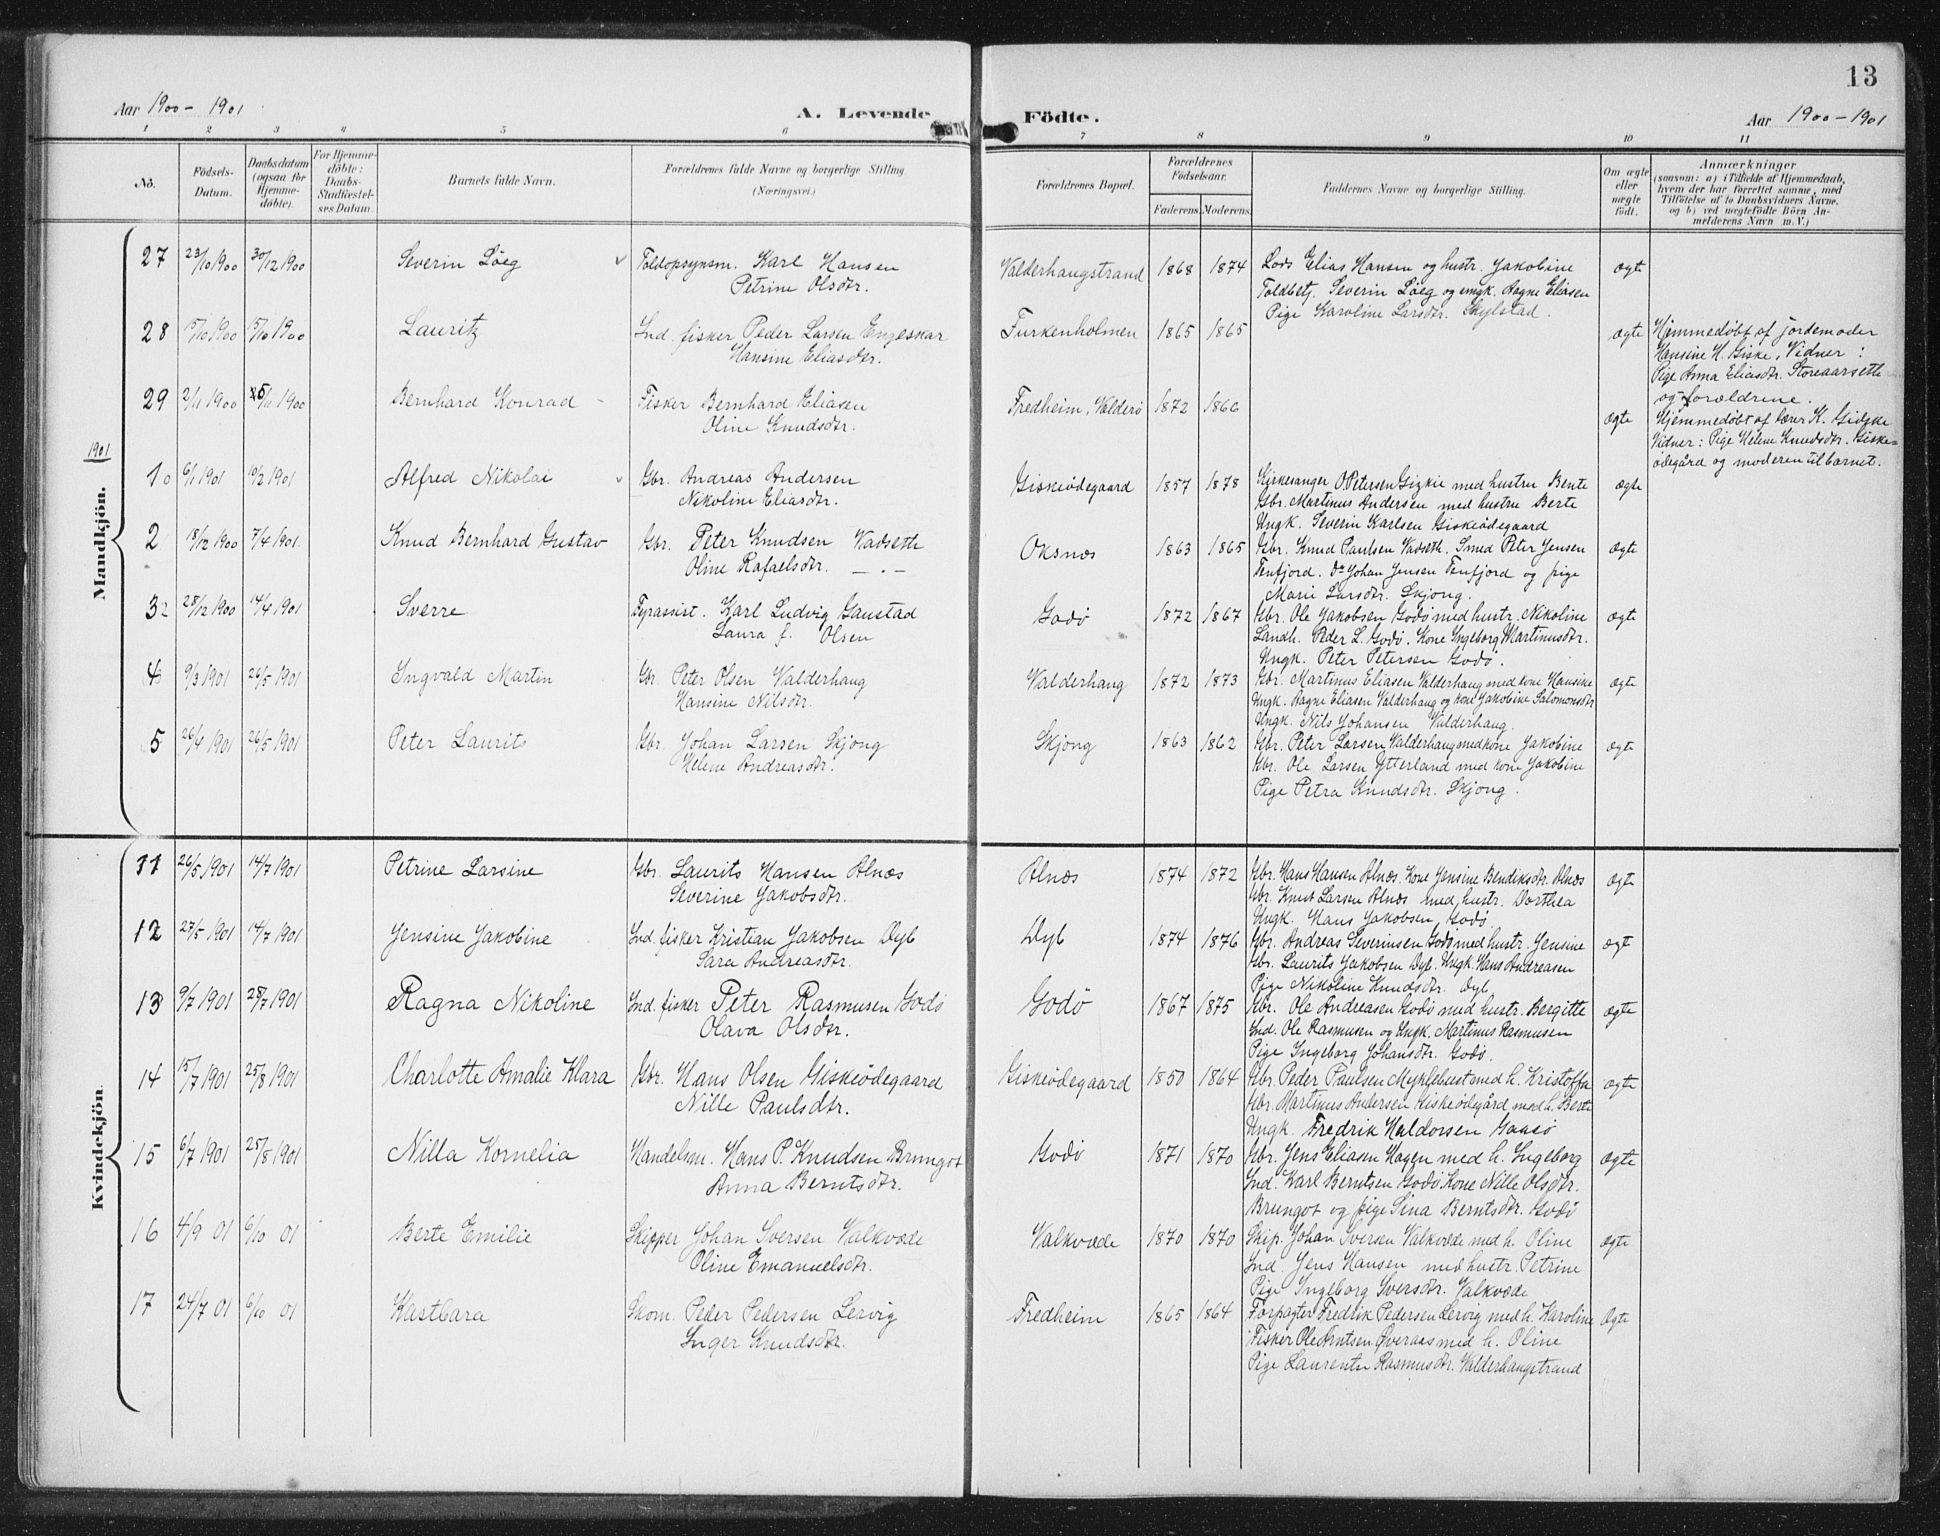 13
Aar 1900 - 1901 A. Levende Födte. Aar 1900 - 1901
1 2 3 4 5 6 7 8 9 10 11
No. Födsels-Datum. Daabsdatum (ogsaa for Hjemme-döbte). For Hjemme-döbte: Daabs-Stadfæstel-ses Datum. Barnets fulde Navn. Forældrenes fulde Navne og borgerlige Stilling (Næringsvei.) Forældrenes Bopæl. Forældrenes Födselsaar. Faderens. Moderens. Faddernes Navne og borgerlige Stilling. Om ægte eller uægte födt. Anmærkninger
(saasom: a) i Tilfælde af Hjemmedaab, hvem der har forrettet samme, med Tilföielse af to Daabsvidners Navne, og b) ved uægtefödte Börn An-melderens Navn m. V.)
Mandkjön.
27 23/10 1900 30/12 1900 Severin Löeg Toldopsynsm. Karl Hansen Valderhaugstrand 1868 1874 Lods Elias Hansen og hustr. Jakobine ægte
Petrine Olsdtr. Toldbetj. Severin Löeg og ungk. Aagne Eliasen
Pige Karoline Larsdtr. Skylstad.
28 15/10 1900 15/10 1900 Lauritz Ind. fisker Peder Larsen Engeskar Furkenholmen 1865 1865 ægte Hjemmedøbt af jordemoder
Hansine Eliasdtr. Hansine H. Giske, Vidner:
Pige Anna Eliasdtr. Storeaarseth
og forældrene.
29 2/11 1900 25/11 1900 Bernhard Konrad Fisker Bernhard Eliasen Fredheim, Valderö 1872 1866 ægte Hjemmedøbt af lærer K. Gidske
Oline Knudsdtr. Vidner: Pige Helene Knudsdtr. Giske-
ødegård og moderen til barnet.
1901
1 6/1 1901 10/2 1901 Alfred Nikolai Gbr. Andreas Andersen Giskeödegaard 1857 1878 Kirkesanger O. Petersen Gizkie med hustru Bente ægte
Nikoline Eliasdtr. Gbr. Martinus Andersen med hustru Berte
Ungk. Severin Karlsen Giskeödegaard
2 18/12 1900 7/4 1901. Knud Bernhard Gustav Gbr. Peter Knudsen Vadseth Oksnæs 1863 1865 Gbr. Knud Paulsen Vadseth. Smed Peter Jensen ægte
Oline Rafaelsdtr. —.— Tenfjord. Do Johan Jensen Tenfjord og pige
Marie Larsdtr. Skjong.
3 28/12 1900 14/4 1901 Sverre Fyrassist. Karl Ludvig Gaustad Godö 1872 1867 Gbr. Ole Jakobsen Godö med hustr. Nikoline ægte
Laura f. Olsen Landh. Peder L. Godö. Kone Ingeborg Martinusdtr.
Ungk. Peter Petersen Godö.
4 9/3 1901 26/5 1901 Ingvald Martin Gbr. Peter Olsen Valderhaug Valderhaug 1872 1873 Gbr. Martinus Eliasen Valderhaug med kone Hansine ægte
Hansine Nilsdtr. Ungk. Aagne Eliasen Valderhaug og kone Jakobine Salomonsdtr
Ungk. Nils Johansen Valderhaug.
5 26/4 1901 26/5 1901 Peter Laurits Gbr. Johan Larsen Skjong Skjong 1863 1862 Gbr. Peter Larsen Valderhaug med kone Jakobine ægte
Helene Andreasdtr. Gbr. Ole Larsen Ytterland med kone Jakobine
Pige Petra Knudsdtr. Skjong.
Kvindekjön
11 26/5 1901 14/7 1901 Petrine Larsine Gbr. Laurits Hansen Alnæs Alnæs 1874 1872 Gbr. Hans Hansen Alnæs. Kone Jensine Bendiksdtr. Alnæs ægte
Severine Jakobsdtr. Gbr. Knut Larsen Alnæs med hustr. Dorthea
Ungk. Hans Jakobsen Godö
12 27/5 1901 14/7 1901 Jensine Jakobine Ind. fisker Kristian Jakobsen Dyb Dyb 1874 1876 Gbr. Andreas Severinsen Godö med hustr. Jensine ægt
Sara Andreasdtr. Gbr. Laurits Jakobsen Dyb. Ungk. Hans Andreasen
Pige Nikoline Knudsdtr. Dyb
13 9/7 1901 28/7 1901 Ragna Nikoline Ind. fisker Peter Rasmusen Godö Godö 1867 1875 Gbr. Ole Andreasen Godö med hustr. Bergitte ægte
Olava Olsdtr. Ind. Ole Rasmusen og Ungk. Martinus Rasmusen
Pige Ingeborg Johansdtr. Godö.
14 15/7 1901 25/8 1901 Charlotte Amalie Klara Gbr. Hans Olsen Giskeödegaard Giskeödegaard 1850 1864 Gbr. Peder Paulsen Myklebust med h. Kristoffa ægte
Nille Paulsdtr. Gbr. Martinus Andersen Giskeödegård med h. Berte
Ungk. Fredrik Haldorsen Gaasö
15 6/7 1901 25/8 1901 Nilla Kornelia Handelsm. Hans P. Knudsen Brungot Godö 1871 1870 Gbr. Jens Eliasen Hagen med h. Ingeborg ægte
Anna Berntsdtr. Ind. Karl Berntsen Godö Kone Nille Olsdtr.
Brungot og pige Sina Berntsdtr. Godö
16 4/9 01 6/10 01 Berte Emilie Skipper Johan Sversen Valkvæde Valkvæde 1870 1870 Skip. Johan Sversen Valkvæde med h. Oline ægte
Oline Emanuelsdtr. Ind. Jens Hansen med hustr. Petrine
Pige Ingeborg Sversdtr. Valkvæde
17 24/7 01 6/10 01 Kastbara Skom. Peder Pedersen Lervig Fredheim 1865 1864 Forpagter Fredrik Pedersen Lervig med h. Karoline Ægte
Inger Knudsdtr. Fisker Ole Arntsen Øveraas med h. Oline
Pige Laurentse Rasmusdtr. Valderhaugstrand